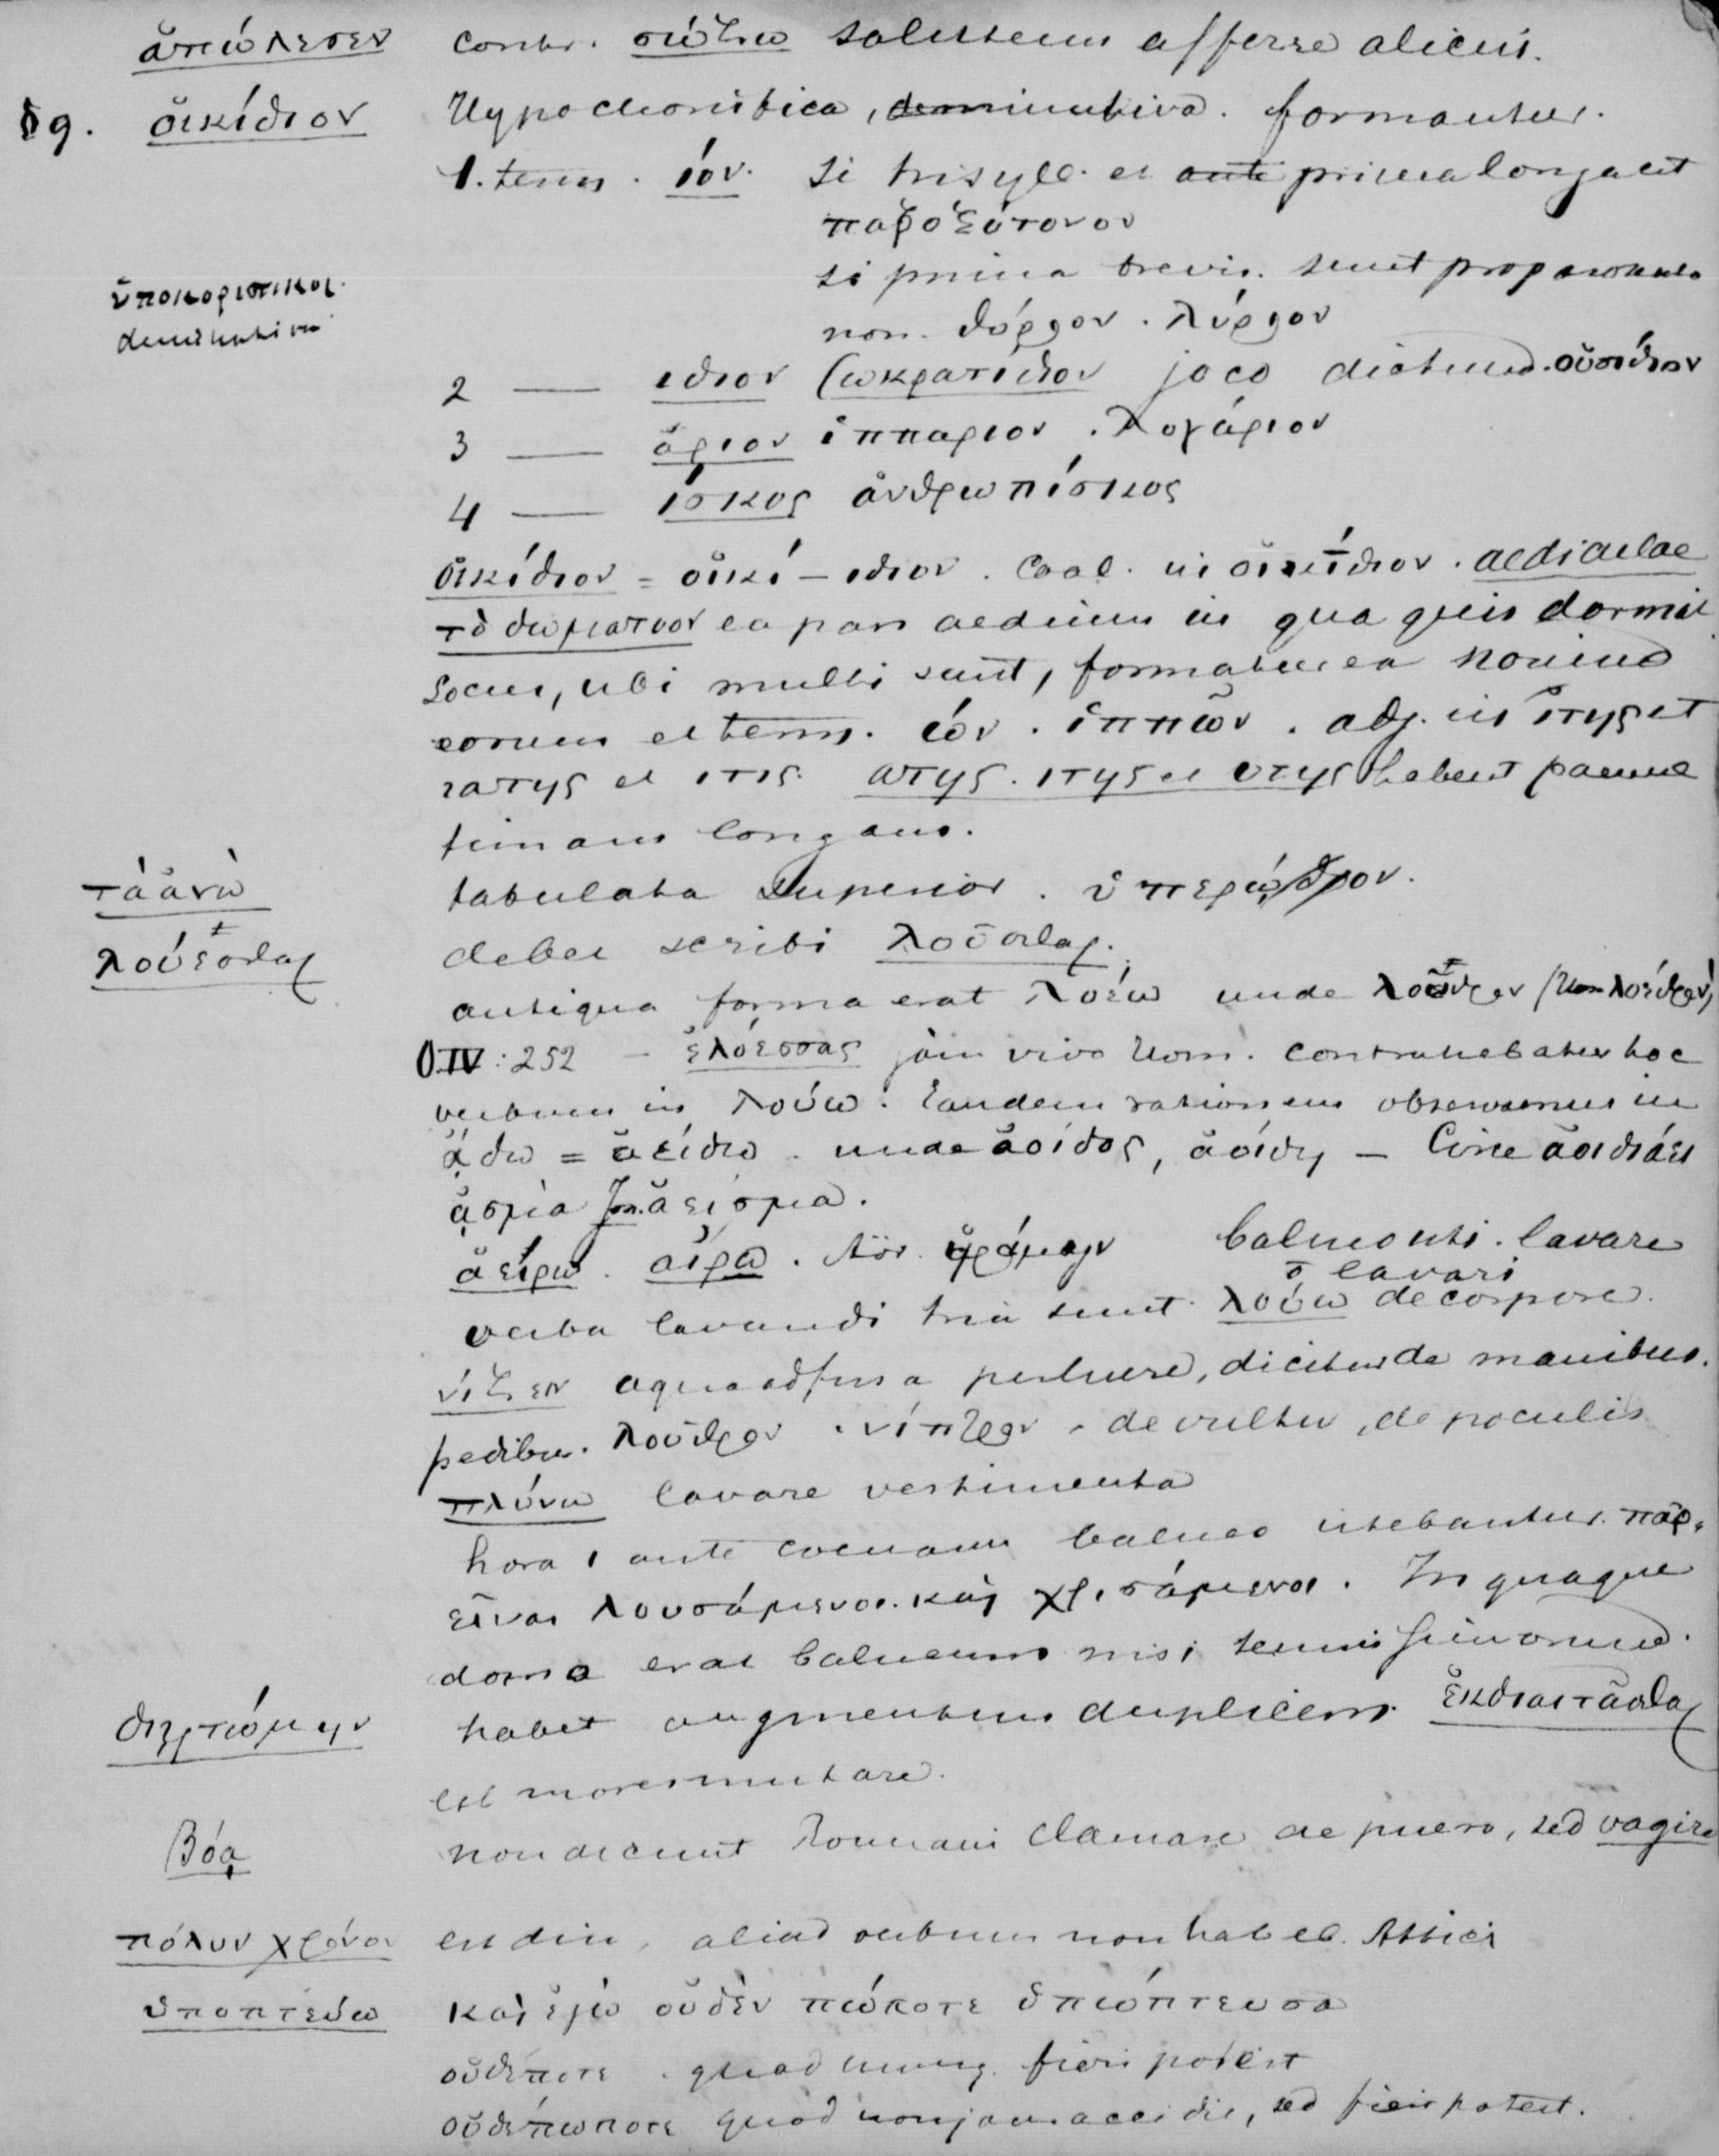 ἀπώλεσεν contr. σώζω salutem afferre alicui.
§9. οἰκίδιον Hypochoristica, deminutiva. formantur.
1. term. ιόν. si trisyll. et ante prima longa est
παροξύτονον
si prima brevis. sunt proparoxyto
ὑποκοριστικοι.
deminutiva
non.
2 — ιδιον Σωκρατίδιον joco dictum. οὐσίδιον
3 — άριον ἱππαριον . λογάριον
4 — ίσκος ἀνθρωπίσκος
οἰκίδιον = οἰκί – ιδιον . Coal. in οἰκίδιον . aediculae
τὸ δωμάτιον ea pars aedium in qua quis dormit
Locus, ubi multi sunt, formatur ea nomine
eorum et term. εών . ἱππῶν . adj. in ίτης et
ιατης et ιτις. ατης . ιτης et οτης habent paenul
timam longam.
τὰ ἄνω tabulata superior . ὑπερῷον.
λούεσθαι debet scribi λοῦσθαι.
antiqua forma erat λοέω unde λοῦτρον (Hom λοέτρον)
O. IV : 252 – ἐλόεσσας jam vivo Hom. contrahebatur hoc
verbum in λούω . Eandem rationem observamus in
ᾄδω = ἀείδω . unde ἀοίδος, ἀοίδη – Circe ἀοιδιάει
ᾆσμα Ion. ἄεισμα.
ἀείρω . αἴρω . Aor. ἠράμην balneonti . lavare
ō lavari
verba lavandi tria sunt . λούω de corpore.
νίζειν aqua adfusa perluere, dicitur de manibus.
pedibus. λοῦτρον . νίπτρον . de vultu, de poculis
πλύνω lavare vestimenta
hora 1 ante coenam balneo utebantur. παρ-
εῖναι λουσάμενοι. καὶ χρισάμενοι. In quaque
domo erat balneum nisi tenuissimorum.
διῃτώμην habet augmentum duplicem. ἐκδιαιτᾶσθαι
est mores mutare.
Βόα non dicunt Romani clamare de puero, sed vagire
πόλυν χρόνον est diu, aliud verbum non habet. Attici
ὑποπτεύω καὶ ἐγὼ οὐδὲν πώποτε ὑπώπτευσα
οὐδέποτε . quod nunq. fieri potest
οὐδεπώποτε quod non jam accidit, sed fieri potest.